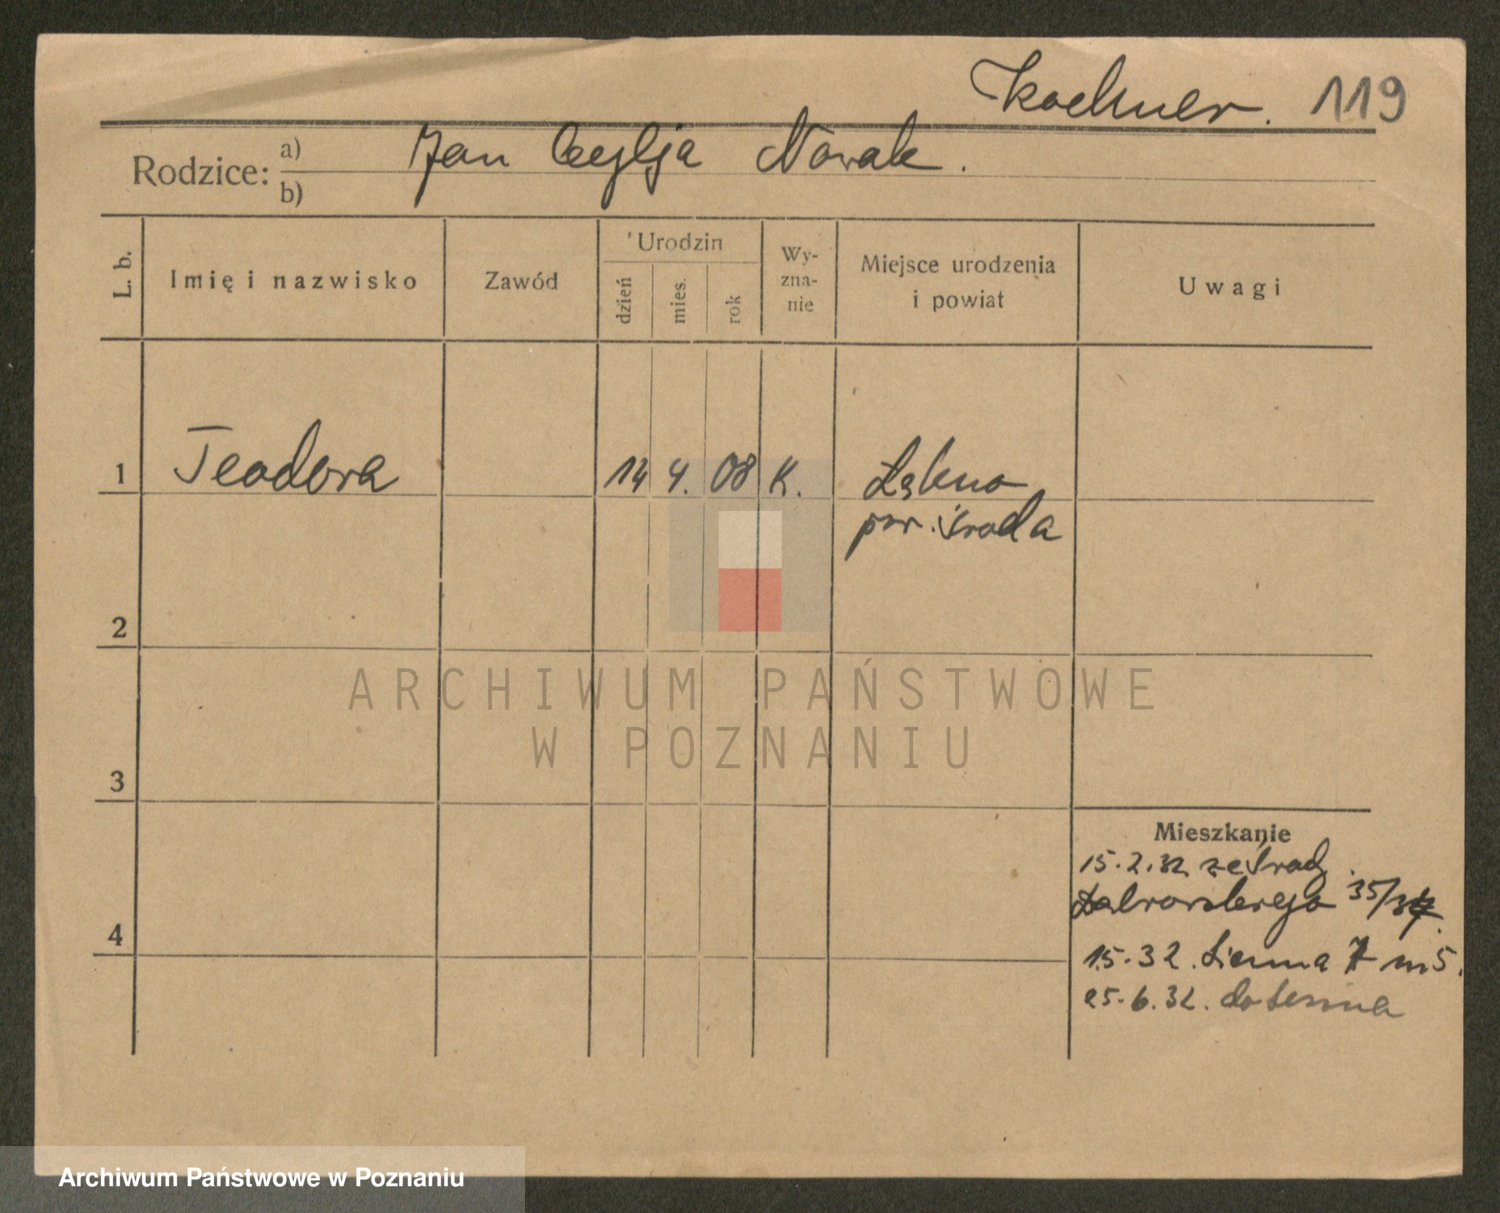 Kochner. 119
Rodzice: a) b) Jan Cecylja Nowak.
L. b. Imię i nazwisko Zawód Urodzin dzień mies. rok Wy- zna- nie Miejsce urodzenia i powiat Uwagi
1 Teodora 14 4. 08 K. Łękno
pow. Środa
2
3
4
ARCHIWUM PAŃSTWOWE
W POZNANIU
Mieszkanie
15.2.32 ze Środ
Dąbrowskiego 35/37
15.32. Sienna 7 m 5.
25.6.32. do
Archiwum Państwowe w Poznaniu